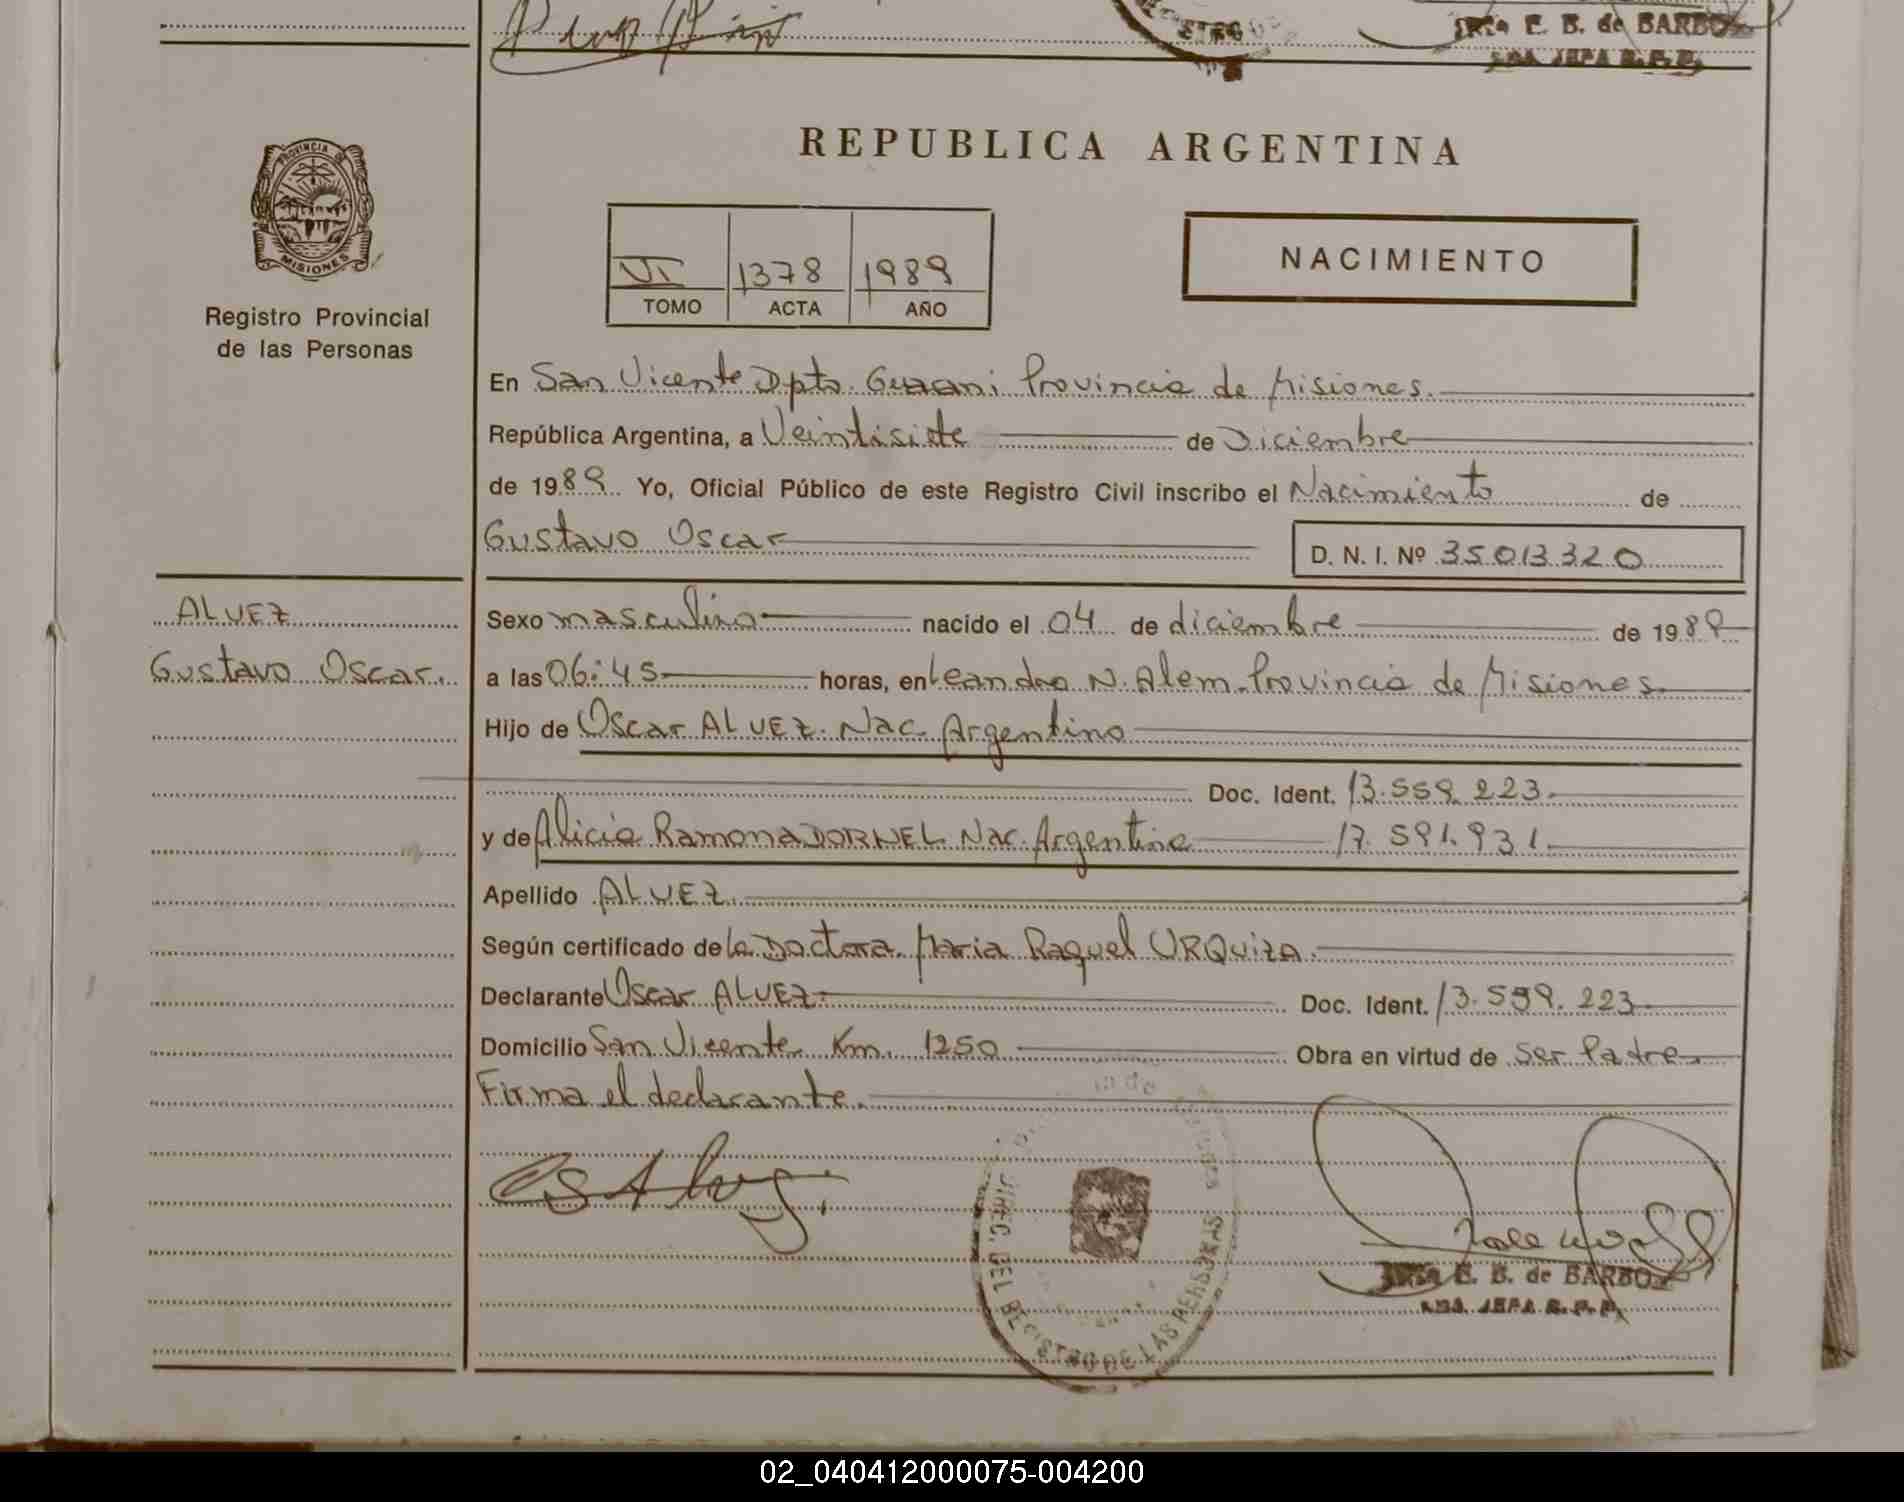 E. B. de BARBOZ
REPUBLICA ARGENTINA
PROVINCIA DE
MISIONES
Registro Provincial
de las Personas
VI 1378 1989
TOMO ACTA AÑO
NACIMIENTO
En San Vicente Dpto. Guarani Provincia de Misiones.
República Argentina, a Veintisiete de Diciembre
de 1989 Yo, Oficial Público de este Registro Civil inscribo el Nacimiento de
Gustavo Oscar D. N. I. Nº 35013320
ALVEZ
Gustavo Oscar.
Sexo masculino nacido el 04 de diciembre de 1989
a las 06:45 horas, en Leandro N. Alem. Provincia de Misiones.
Hijo de Oscar ALVEZ. Nac. Argentino
Doc. Ident. 13.559.223.
y de Alicia Ramona DORNEL Nac. Argentina 17.591.931.
Apellido ALVEZ.
Según certificado de la Doctora. Maria Raquel URQUIZA.
Declarante Oscar ALVEZ. Doc. Ident. 13.559.223.
Domicilio San Vicente Km. 1250 Obra en virtud de Ser Padre.
Firma el declarante.
DIREC. DEL REGISTRO DE LAS PERSONAS
E. B. de BARBOZ
02_040412000075-004200